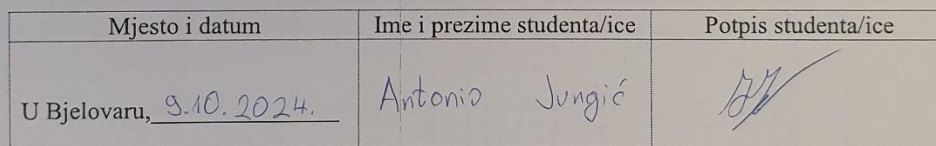 Mjesto i datum Ime i prezime studenta/ice Potpis studenta/ice
U Bjelovaru, 9.10.2024. Antonio Jungić